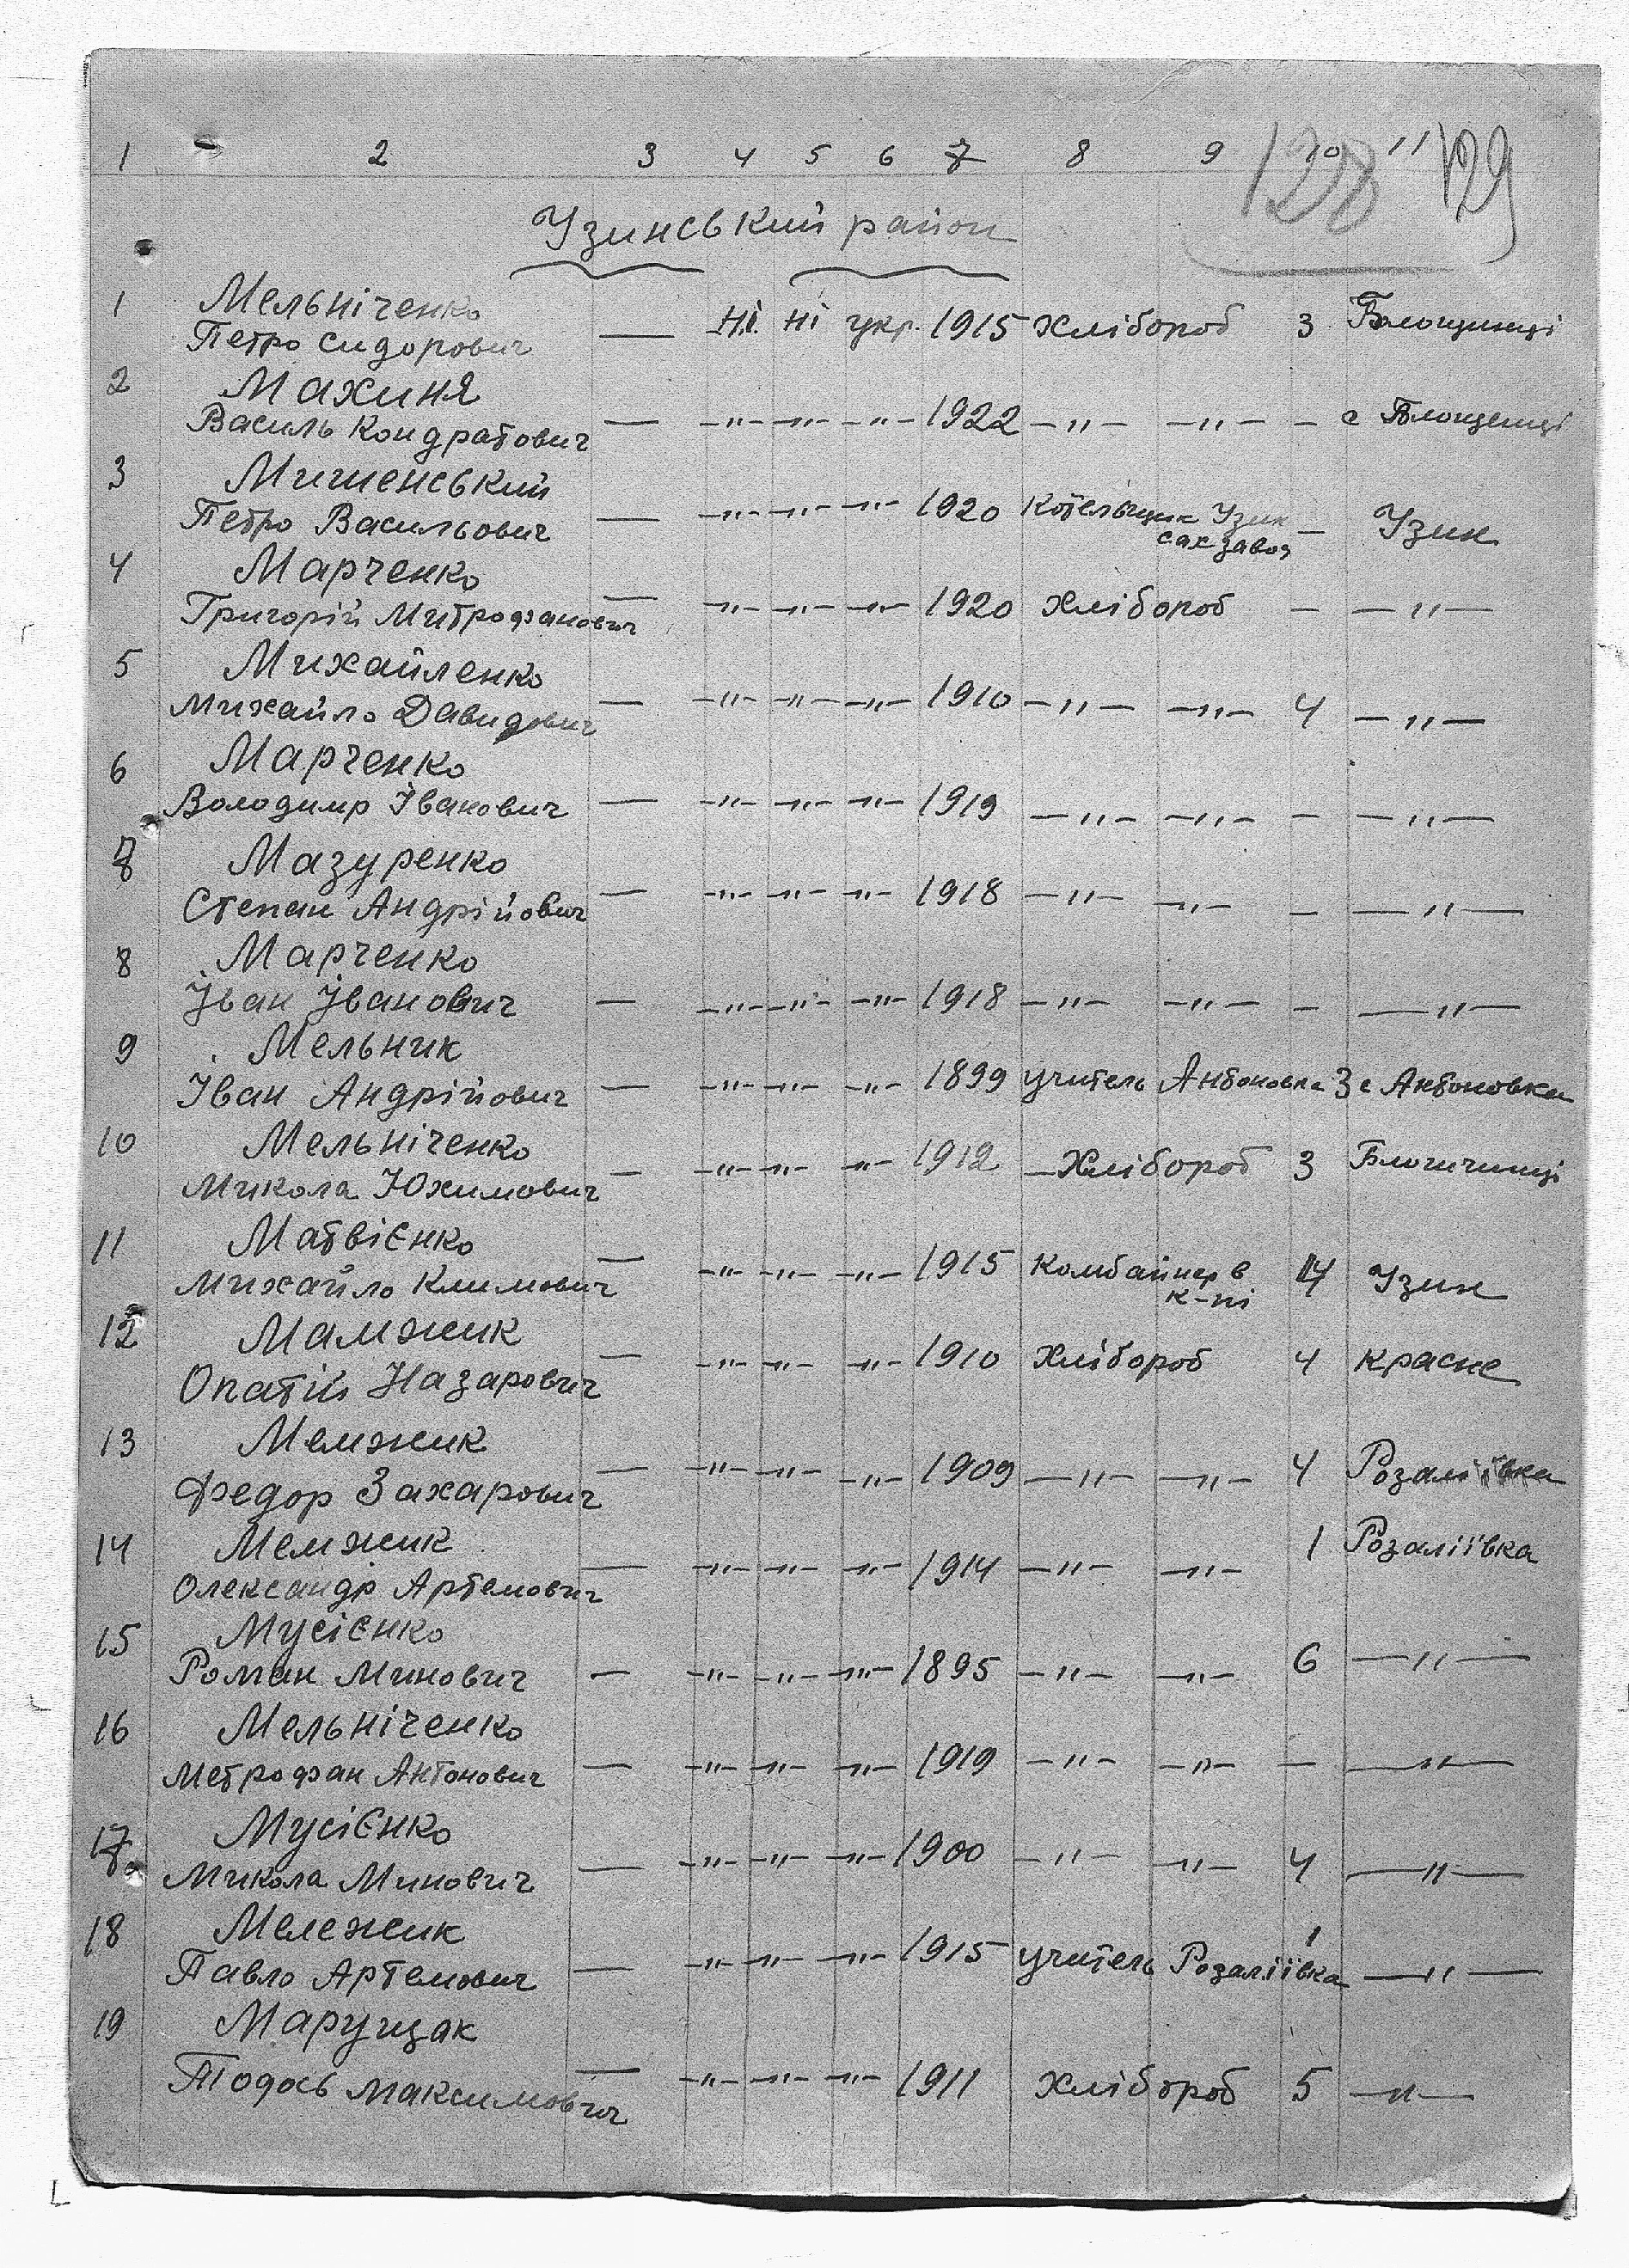 1 2 3 4 5 6 7 8 9 10 11 129
128
Узинський район
1 Мельніченко
Петро Сидорович — Ні Ні укр. 1915 Хлібороб 3 Блощинці
2 Махиня
Василь Кондратович — —"— —"— —"— 1922 —"— —"— — с Блощенці
3 Мишенський
Петро Васильович — —"— —"— —"— 1920 Котельщик Узин сахзавод — Узин
4 Марченко
Григорій Митрофанович — —"— —"— —"— 1920 Хлібороб — —"—
5 Михайленко
Михайло Давидович — —"— —"— —"— 1910 —"— —"— 4 —"—
6 Марченко
Володимир Іванович — —"— —"— —"— 1919 —"— —"— — —"—
7 Мазуренко
Степан Андрійович — —"— —"— —"— 1918 —"— —"— — —"—
8 Марченко
Іван Іванович — —"— —"— —"— 1918 —"— —"— — —"—
9 Мельник
Іван Андрійович — —"— —"— —"— 1899 учитель Антоновка 3 с Антоновка
10 Мельніченко
Микола Юхимович — —"— —"— —"— 1912 —Хлібороб 3
11 Матвієнко
Михайло Климович — —"— —"— —"— 1915 Комбайнер в к-пі 4 Узин
12 Мамжик
Опатій Назарович — —"— —"— —"— 1910 Хлібороб 4 Красне
13 Мемжик
Федор Захарович — —"— —"— —"— 1909 —"— —"— 4 Розаліївка
14 Мемжик
Олександр Артемович — —"— —"— —"— 1914 —"— —"— 1 Розаліївка
15 Мусієнко
Роман Минович — —"— —"— —"— 1895 —"— —"— 6 —"—
16 Мельніченко
Метрофан Антонович — —"— —"— —"— 1919 —"— —"— — —"—
17 Мусієнко
Микола Минович — —"— —"— —"— 1900 —"— —"— 4 —"—
18 Мележик
Павло Артемович — —"— —"— —"— 1915 учитель Розаліївка 1 —"—
19 Марущак
Тодось Максимович — —"— —"— —"— 1911 Хлібороб 5 —"—